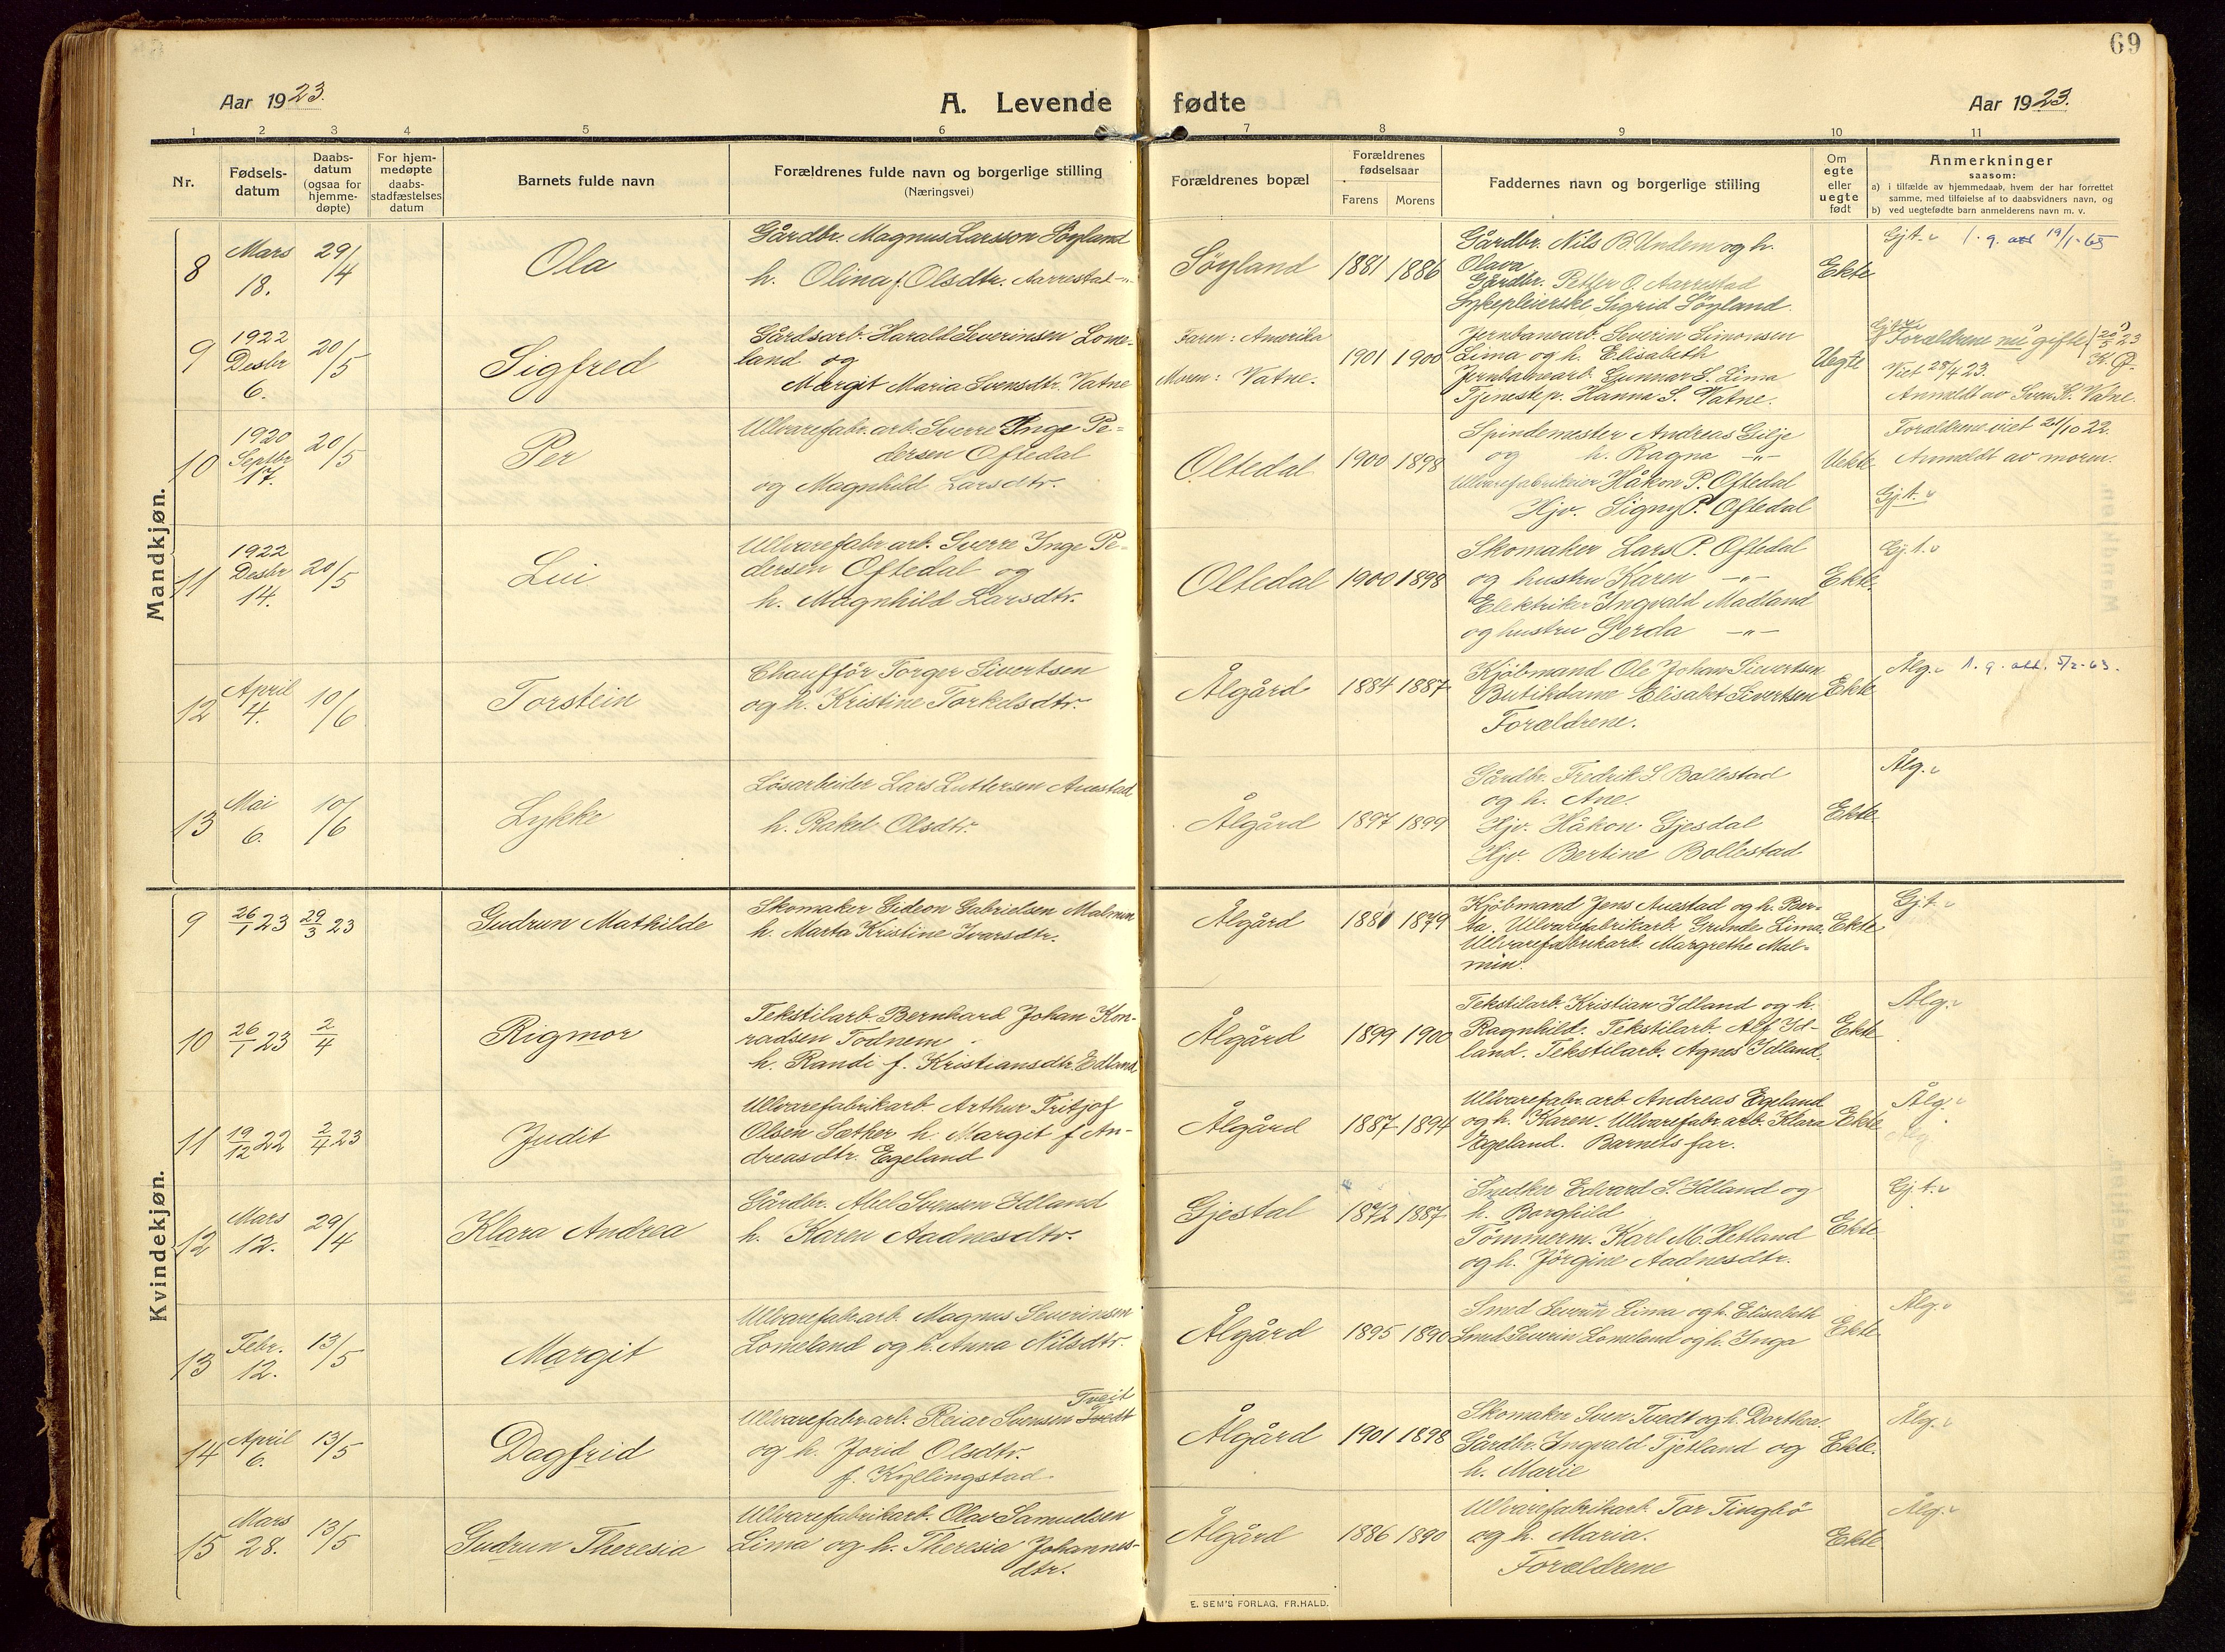 69
Aar 1923.
A. Levende fødte
Aar 1923.
1 2 3 4 5 6 7 8 9 10 11
Nr.
Fødsels-
datum
Daabs-
datum
(ogsaa for
hjemme-
døpte)
For hjem-
medøpte
daabs-
stadfæstelses
datum
Barnets fulde navn
Forældrenes fulde navn og borgerlige stilling
(Næringsvei)
Forældrenes bopæl
Forældrenes
fødselsaar
Farens Morens
Faddernes navn og borgerlige stilling
Om
egte
eller
uegte
født
Anmerkninger
saasom:
a) i tilfælde av hjemmedaab, hvem der har forrettet
samme, med tilføielse af to daabsvidners navn, og
b) ved uegtefødte barn anmelderens navn m. v.
Mandkjøn.
8
Mars
18.
29/4
Ola
Gårdbr. Magnus Larsson Söyland
h. Olina f. Olsdtr. Aarrestad -"-
Söyland
1881 1886
Gårdbr. Nils B. Undem og h.
Olava
Gårdbr. Petter O. Aarrestad
Sykepleierske Sigrid Söyland.
Ekte
Gj.t. 1. g. att 19/1-65
9
1922
Desbr
6.
20/5
Sigfred
Gårdsarb. Harald Severinsen Lome-
land og
Margit Maria Svensdtr. Vatne
Faren: Amerika
Moren: Vatne.
1901 1900
Jernbanearb. Severin Simonsen
Lima og h. Elisabeth
Jernbanearb. Gunnar S. Lima
Tjenestep. Hanna S. Vatne.
Uegte
Forældrene nu gifte
Viet 28/4 23.
Anmeldt av Sven K. Vatne.
10
1920
Septbr
17.
20/5
Per
Ullvarefabr.arb. Sverre Inge Pe-
dersen Oftedal
og Magnhild Larsdtr.
Oltedal
1900 1898
Spindemester Andreas Gilje
og h. Ragna -"-
Ullvarefabrikeier Håkon P. Oftedal
Hjv. Signy P. Oftedal
Uekte
Forældrene viet 21/10 22.
Anmeldt av moren.
Gj.t.
11
1922
Desbr
14.
20/5
Lui
Ullvarefabr.arb. Sverre Inge Pe-
dersen Oftedal og
h. Magnhild Larsdtr.
Oltedal
1900 1898
Skomaker Lars P. Oftedal
og hustru Karen -"-
Elektriker Ingvald Madland
og hustru Gerda -"-
Ekte
Gj.t.
12
April
4.
10/6
Torstein
Chaufför Torger Sivertsen
og h. Kristine Torkelsdtr.
Ålgård
1884 1887
Kjöbmand Ole Johan Sievertsen
Butikdame Elisabet Sivertsen
Forældrene.
Ekte
Ålg. 1. g. att. 5/2-63.
13
Mai
6.
10/6
Lykke
Lösarbeider Lars Luttersen Auestad
h. Rakel Olsdtr.
Ålgård
1897 1899
Gårdbr. Fredrik S Bollestad
og h. Ane.
Hjv. Håkon Gjesdal
Hjv. Bertine Bollestad
Ekte
Ålg.
Kvindekjøn.
9
26/1 23
29/3 23
Gudrun Mathilde
Skomaker Gideon Gabrielsen Malmin
h. Marta Kristine Ivarsdtr.
Ålgård
1881 1879
Kjöbmand Jens Auestad og h. Ber-
ta. Ullvarefabrikarb. Grunde Lima.
Ullvarefabrikarb. Margrethe Mal-
min.
Ekte
Gj.t.
10
26/1 23
2/4
Rigmor
Tekstilarb. Bernhard Johan Kon-
radsen Todnem
h. Randi f. Kristiansdtr. Edland
Ålgård
1899 1900
Tekstilarb. Kristian Idland og h.
Ragnhild. Tekstilarb. Alf Id-
land. Tekstilarb. Agnes Idland.
Ekte
Ålg.
11
19/12 22
2/4 23
Judit
Ullvarefabrikarb. Arthur Fritjof
Olsen Sæther h. Margit f An-
dreasdtr. Egeland
Ålgård
1887 1894
Ullvarefabr.arb Andreas Egeland
og h. Karen. Ullvarefabr.arb. Klara
Egeland. Barnets far.
Ekte
Ålg.
12
Mars
12.
29/4
Klara Andrea
Gårdbr. Abel Svensen Edland
h. Karen Aadnesdtr.
Gjestal
1872 1887
Snedker Edvard S. Idland og
h. Borghild
Tömmerm. Karl M. Hetland
og h. Jörgine Aadnesdtr.
Ekte
Gj.t.
13
Febr.
12.
13/5
Margit
Ullvarefabr.arb. Magnus Severinsen
Lomeland og h. Anna Nilsdtr.
Ålgård
1895 1890
Smed Severin Lima og h. Elisabeth
Smed Severin Lomeland og h. Inga
Ekte
Ålg.
14
April
6.
13/5
Dagfrid
Tveit
Ullvarefabr.arb. Reiar Svensen Tvedt
og h. Jorid Olsdtr.
f. Kyllingstad.
Ålgård
1901 1898
Skomaker Sven Tvedt og h. Dorthea.
Gårdbr. Ingvald Tjetland og
h. Marie
Ekte.
Ålg.
15
Mars
28.
13/5
Gudrun Theresia
Ullvarefabrikarb. Olav Samuelsen
Lima og h. Theresia Johannes-
dtr.
Ålgård
1886 1890
Ullvarefabrikarb. Tor Tingbö
og h. Maria.
Forældrene
Ekte
Ålg.
E. SEM'S FORLAG, FR.HALD.